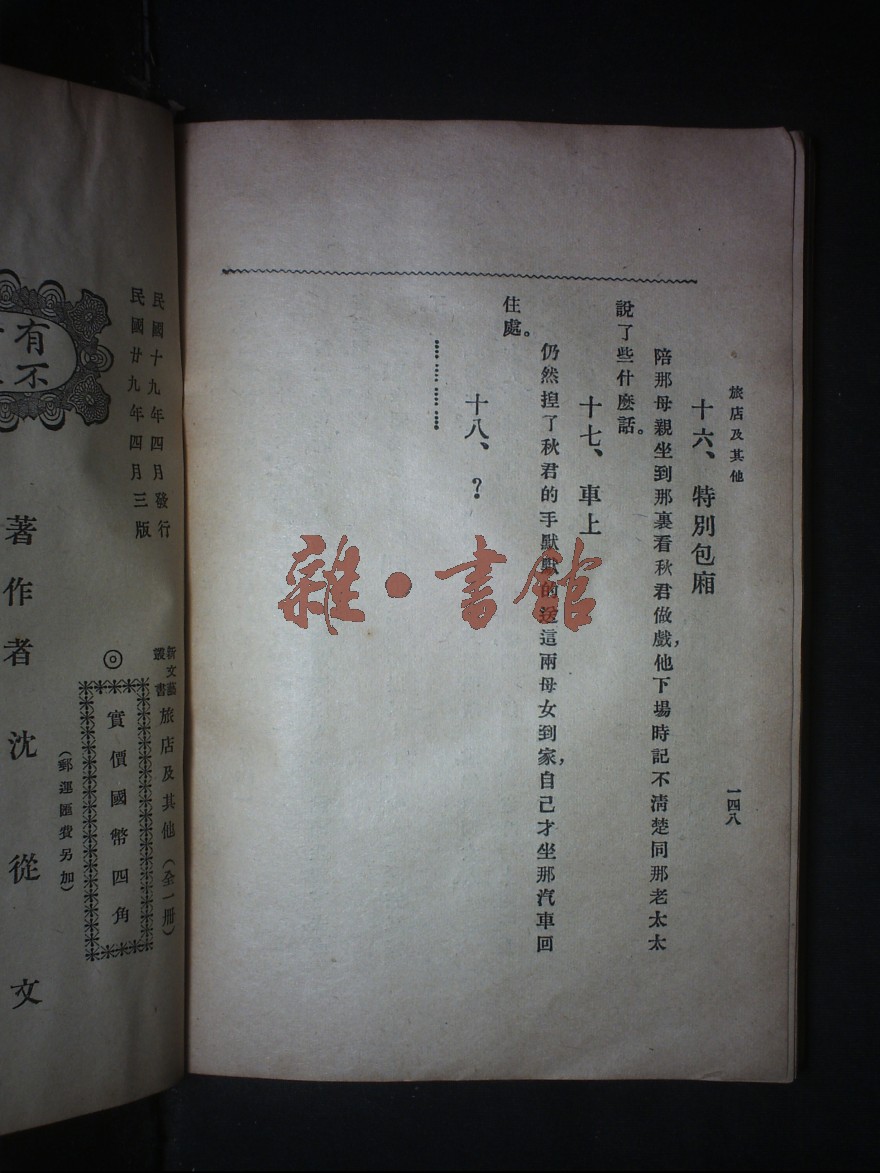 旅店及其他
一四八
十六、特別包廂
陪那母親坐到那裏看秋君做戲，他下場時記不清楚同那老太太
說了些什麼話。
十七、車上
仍然揑了秋君的手默默的送這兩母女到家，自己才坐那汽車回
住處。
十八、？
……………
雜·書館
新文藝叢書
旅店及其他（全一冊）
民國十九年四月發行
民國廿九年四月三版
◎
實價國幣四角
（郵運匯費另加）
著作者沈從文
有
不